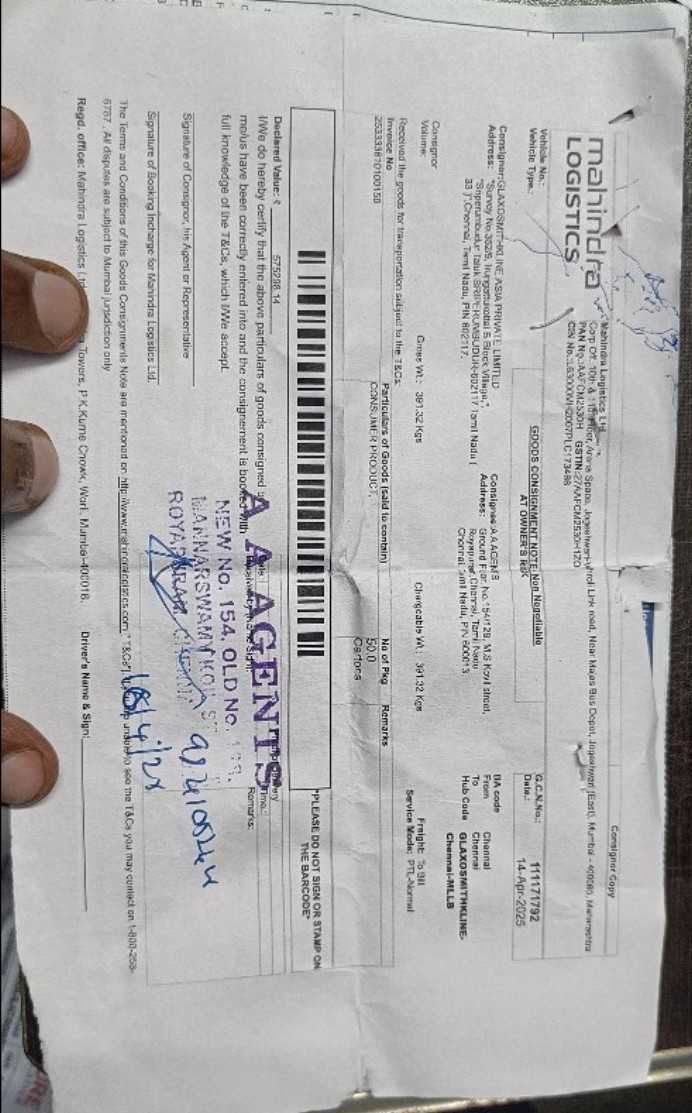 Consignor Copy
mahindra
LOGISTICS
Mahindra Logistics Ltd.
Corp Off. 10th & 11th Floor, Arena Space, Jogeshwari Vikhroli Link road, Near Majas Bus Depot, Jogeshwari (East), Mumbai - 400060, Maharashtra
PAN No.:AAFCM2530H GSTIN:27AAFCM2530H1ZO
CIN No.:
Vehicle No.:
Vehicle Type.:
GOODS CONSIGNMENT NOTE Non Negotiable
AT OWNER'S RISK
G.C.N.No.: 111171792
Date.: 14-Apr-2025
Consigner:GLAXOSMITHKLINE ASIA PRIVATE LIMITED
Address: "Survey No.352/5, Irungattukottai B Block Village,"
"Sriperumbudur Taluk SRIPERUMBUDUR-602117 Tamil Nadu (
33 )",Chennai, Tamil Nadu, PIN 602117.
Consignee:A A AGENTS
Address: Ground Floor, No.154/129, M.S Kovil street,
Royapuram,Chennai, Tamil Nadu
Chennai, Tamil Nadu, PIN 600013
BA code
From Chennai
To Chennai
Hub Code GLAXOSMITHKLINE-
Chennai-MLLB
Consignor
Volume:
Gross Wt.: 391.32 Kgs
Chargeable Wt.: 391.32 Kgs
Freight: To Bill
Service Mode: PTL-Normal
Received the goods for transportation subject to the T&Cs:
Invoice No
Particulars of Goods (said to contain)
No of Pkg
Remarks
CONSUMER PRODUCT,
50.0
Cartons
*PLEASE DO NOT SIGN OR STAMP ON
THE BARCODE*
Declared Value: ₹ 575298.14
I/We do hereby certify that the above particulars of goods consigned by
me/us have been correctly entered into and the consignement is booked with
full knowledge of the T&Cs, which I/We accept.
Remarks:
A A AGENTS
NEW No. 154, OLD No.
MANNARSWAMY KOIL ST
ROYAPURAM, CHENNAI
Signature of Consignor, his Agent or Representative
Signature of Booking Incharge for Mahindra Logistics Ltd.
The Terms and Conditions of this Goods Consignments Note are mentioned on http://www.mahindralogistics.com "T&Cs") unable to see the T&Cs you may contact on 1-800-258-
6787. All disputes are subject to Mumbai jurisdiction only
Regd. office: Mahindra Logistics Ltd Towers, P.K.Kurne Chowk, Worli, Mumbai-400018.
Driver's Name & Sign: